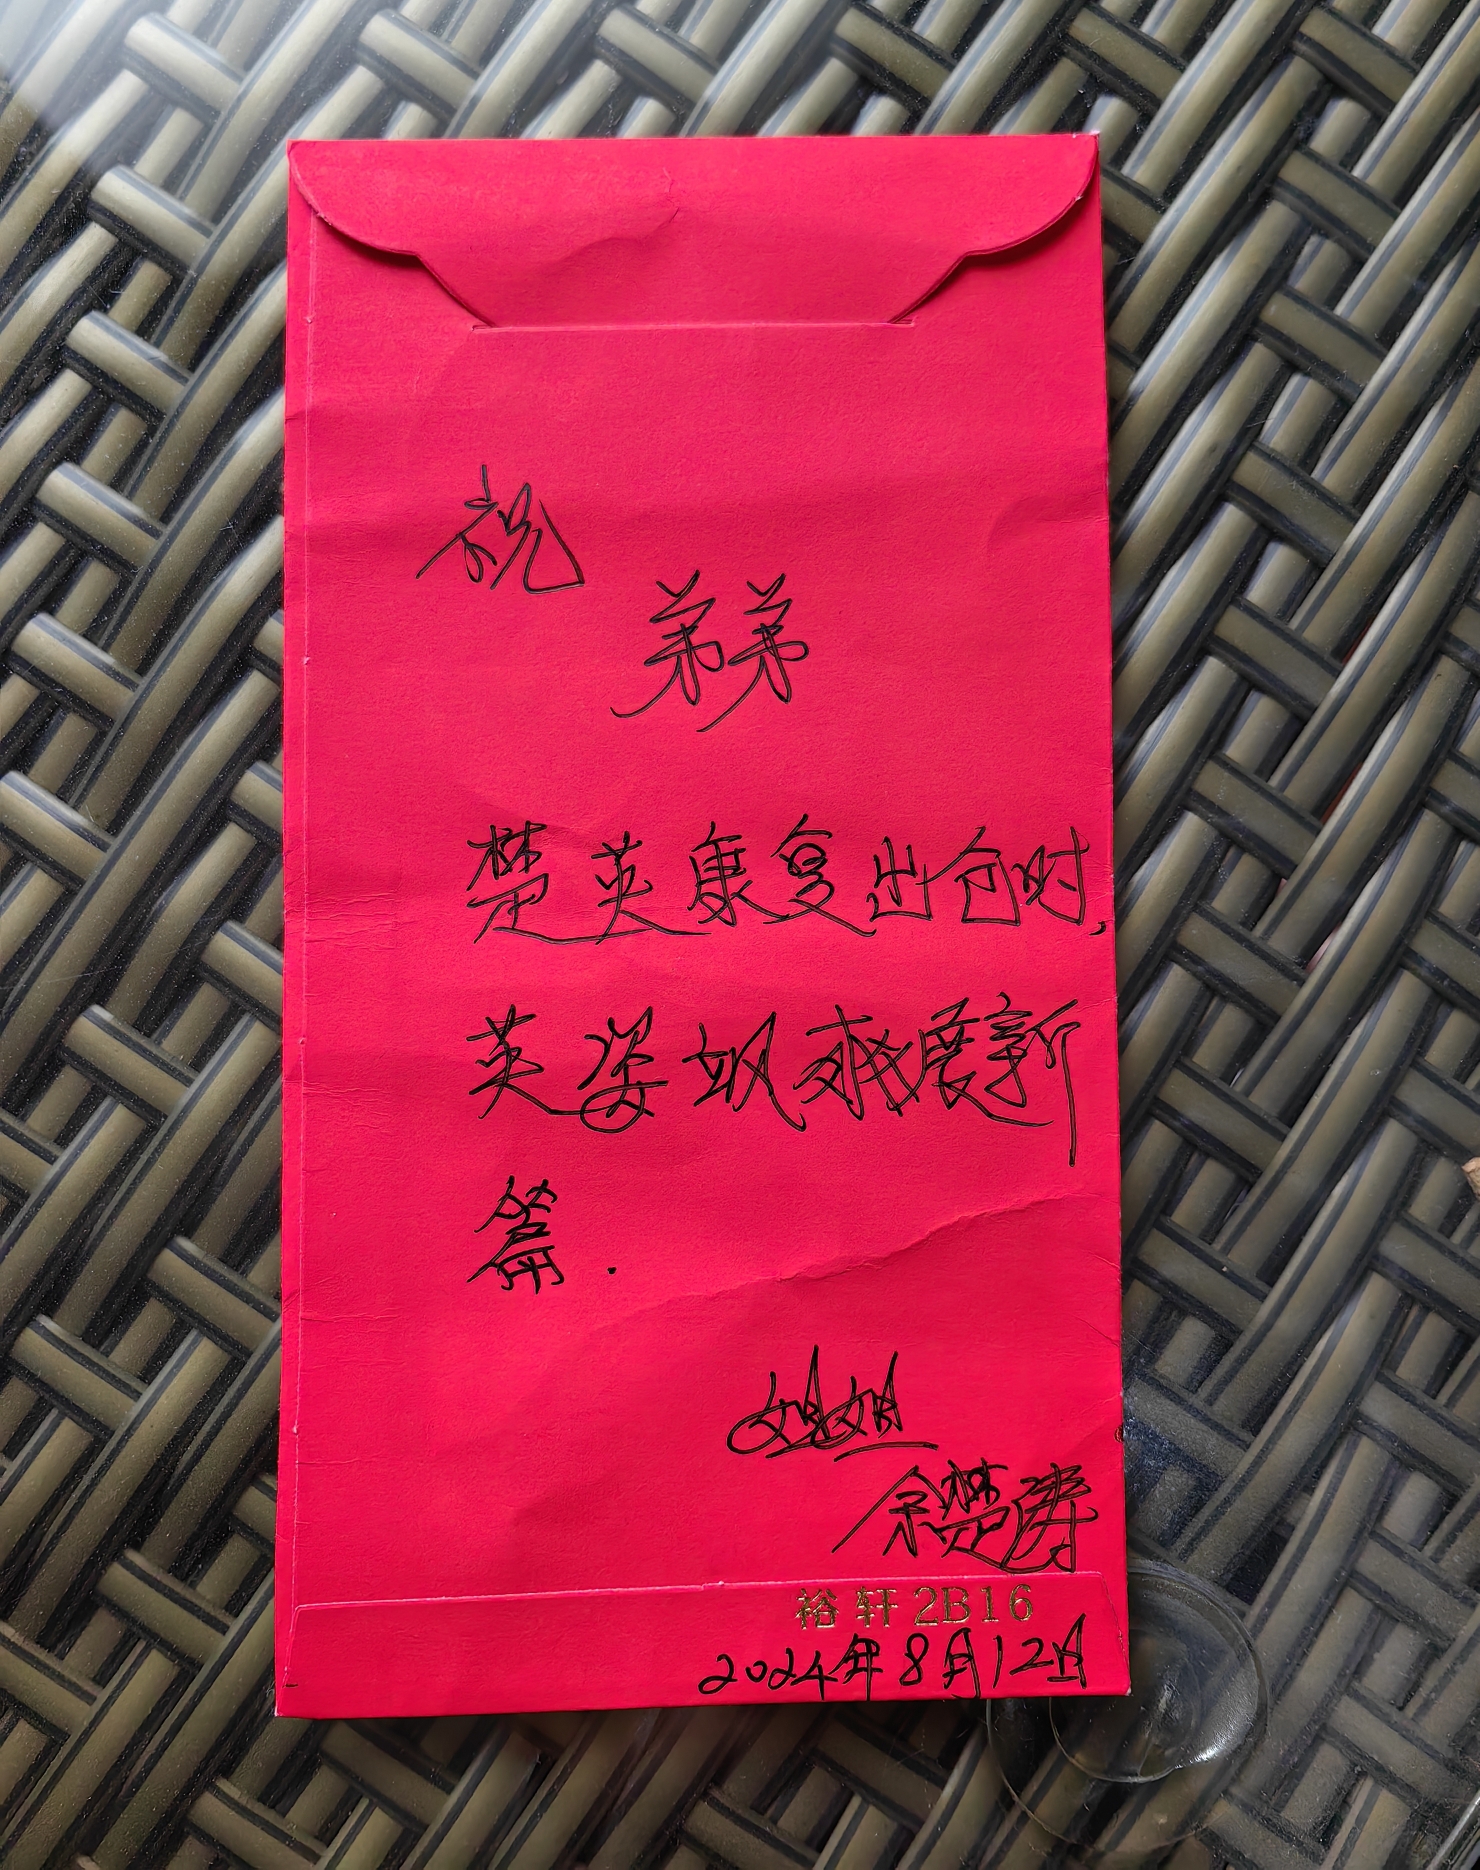 祝
弟弟
楚英康复出仓时,
英姿飒爽展新
篇.
姐姐
余楚涛
裕轩2B16
2024年8月12日